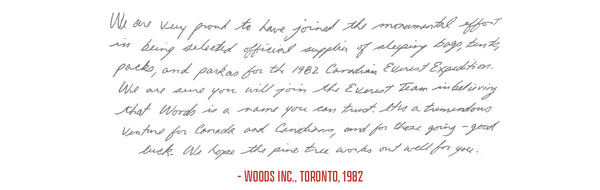 We are very proud to have joined the monumental effort
in being selected official supplier of sleeping bags, tents,
packs, and parkas for th 1982 Canadian Everest Expedition.
We are sure you will join the Everest Team in believing
that Woods is a name you can trust. It is a tremendous
venture for Canada and Canadians, and for those going - good
luck. We hope the pine tree works out well for you.
- WOODS INC., TORONTO, 1982